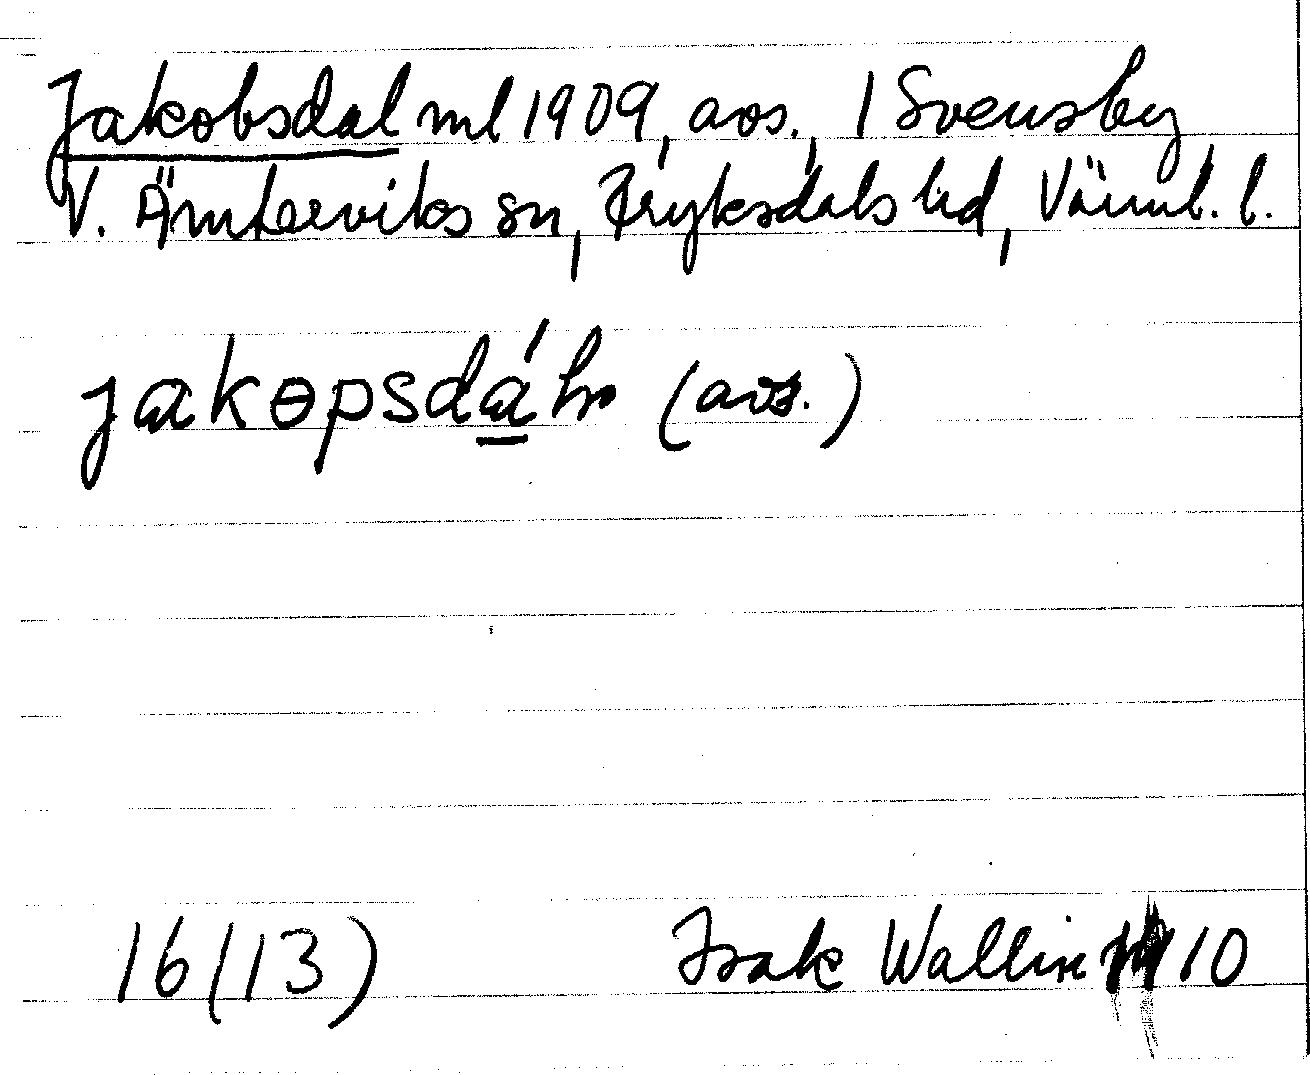 Jakobsdal ml 1909, avs., 1 Svensby
V. Ämterviks sn, Fryksdals hd, Värml. l.
jakɵpsdáln (avs.)
16(13) Isak Wallin 10